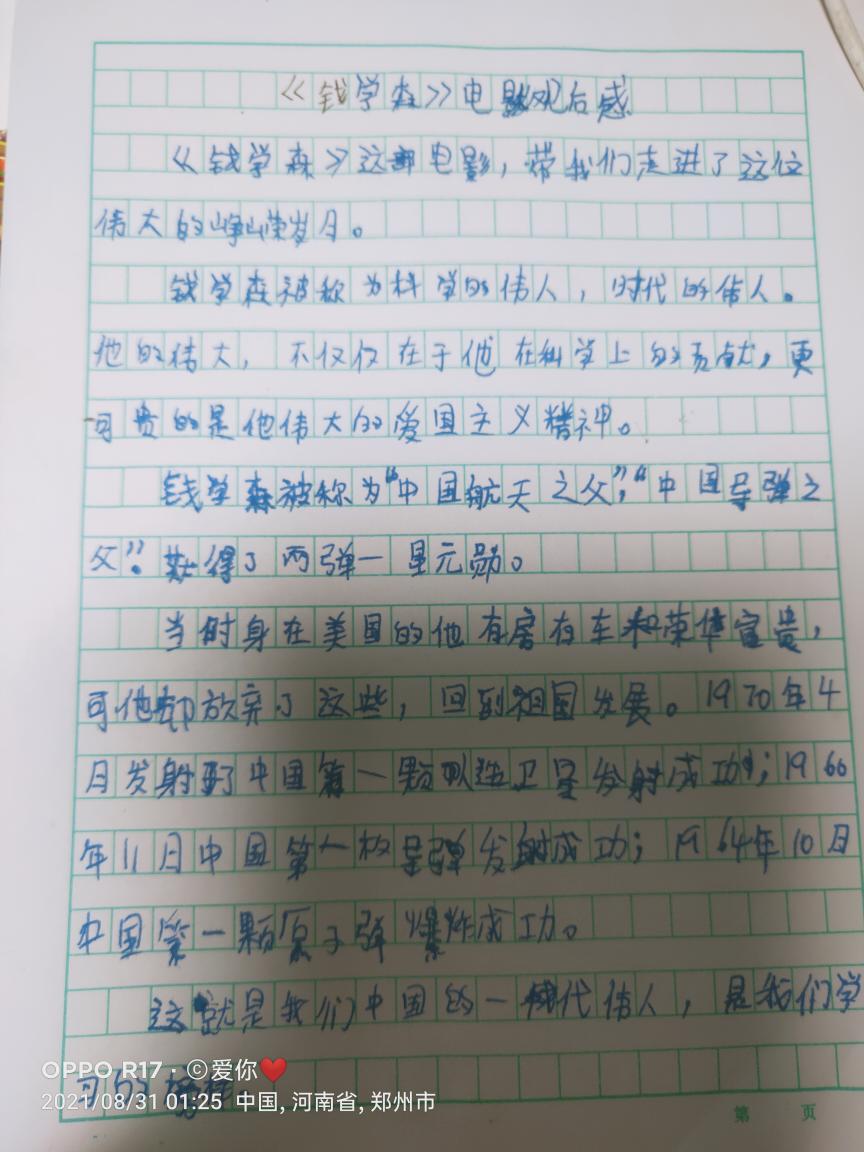 《钱学森》电影观后感
《钱学森》这部电影，带我们走进了这位
伟大的峥嵘岁月。
钱学森被称为科学的伟人，时代的伟人。
他的伟大，不仅仅在于他在科学上的贡献，更
可贵的是他伟大的爱国主义精神。
钱学森被称为“中国航天之父”，“中国导弹之
父”。获得了两弹一星元勋。
当时身在美国的他有房有车和荣华富贵，
可他却放弃了这些，回到祖国发展。1970年4
月发射了中国第一颗人造卫星发射成功；1960
年11月中国第一枚导弹发射成功；1964年10月
中国第一颗原子弹爆炸成功。
这就是我们中国的一代伟人，是我们学
习的榜样
OPPO R17·©爱你❤️
2021/08/31 01:25 中国,河南省,郑州市
第 页